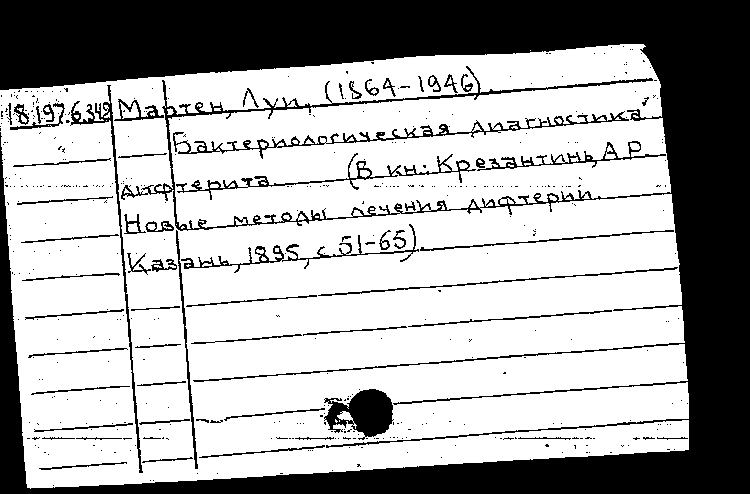 18.197.6.348 Мартен, Луи, (1864-1946).
Бактериологическая диагностика
дифтерита (В кн.: Крезантинь, А.Р.
Новые методы лечения дифтерии.
Казань, 1895, с. 51-65).